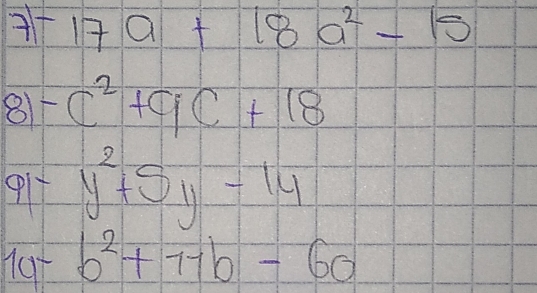 7)- 17a + 18a² - 15
8)- c² + 9c + 18
9)- y² + 5y - 14
10)- b² + 11b - 60